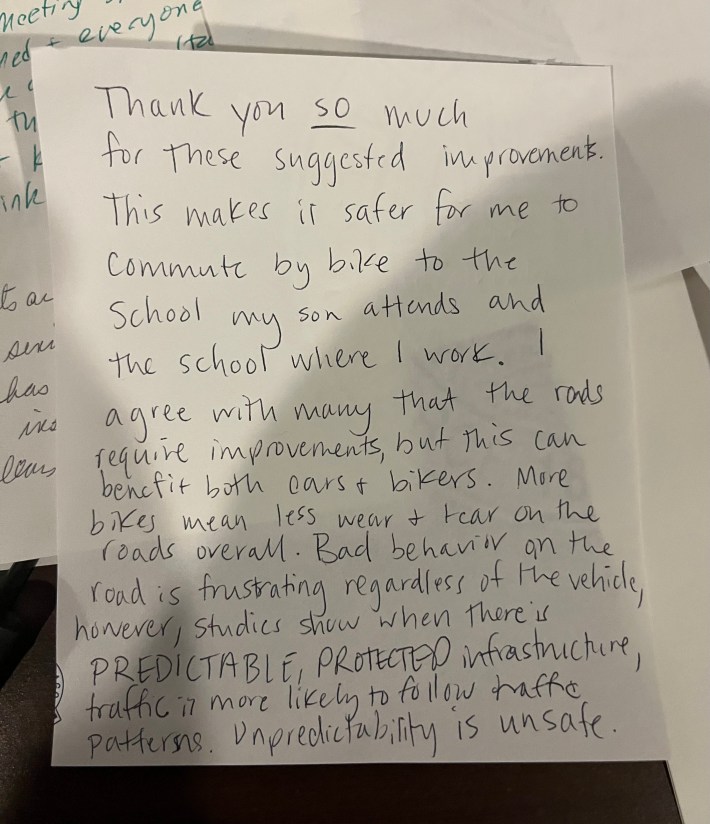 meeting
everyone
Thank you so much
for these suggested improvements.
This makes it safer for me to
commute by bike to the
School my son attends and
the school where I work. I
agree with many that the roads
require improvements, but this can
benefit both cars + bikers. More
bikes mean less wear + tear on the
roads overall. Bad behavior on the
road is frustrating regardless of the vehicle,
however, studies show when there is
PREDICTABLE, PROTECTED infrastructure,
traffic is more likely to follow traffic
patterns. Unpredictability is unsafe.
ink
has